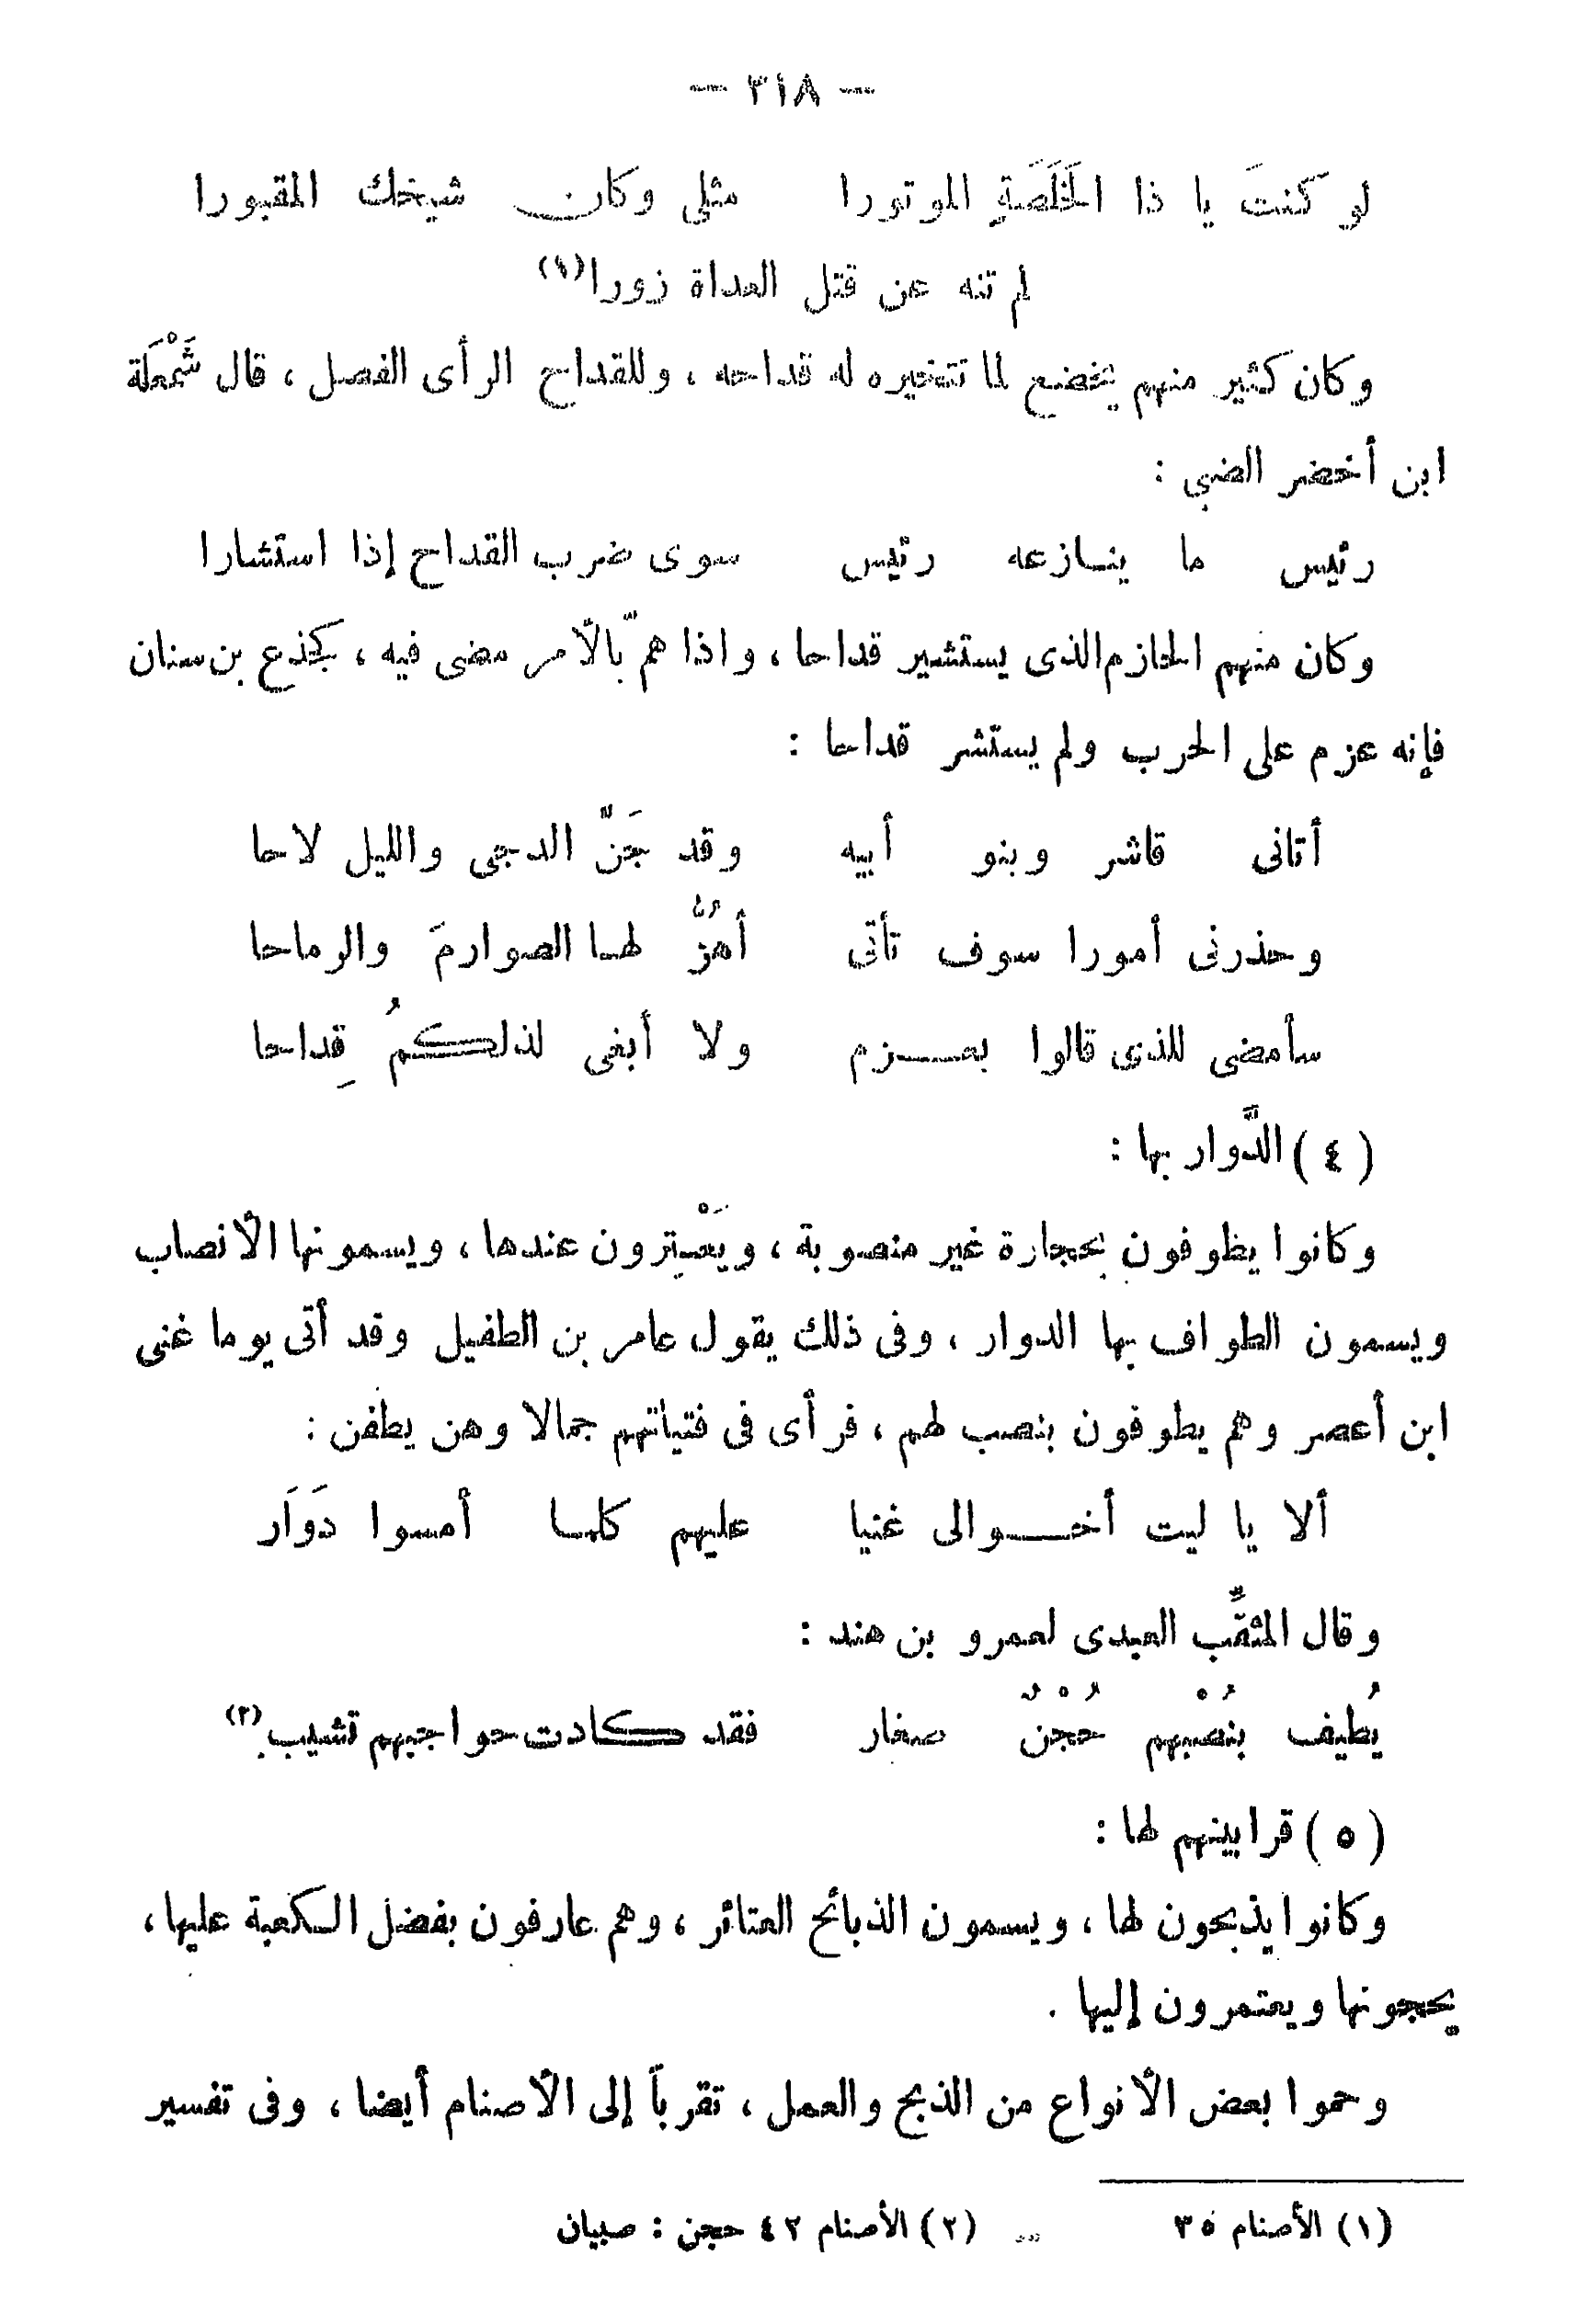 — ٣١٨ —
لو كنتَ يا ذا الخَلَصَةِ الموتورا مثلى وكان شيخك المقبورا
لم تنه عن قتل العداة زورا(١)
وكان كثير منهم يخضع لما تتخيره له قداحه ، وللقداح الرأى الفصل ، قال شَمْعَلة
ابن أخضر الضبى :
رئيس ما ينازعه رئيس سوى ضرب القداح إذا استشارا
وكان منهم الحازم الذى يستشير قداحا ، واذا همّ بالأمر مضى فيه ، كجذع بن سنان
فإنه عزم على الحرب ولم يستشر قداحا :
أتانى قاشر وبنو أبيه وقد جَنّ الدجى والليل لاحا
وحذرنى أمورا سوف تأتى أهُزُّ لها الصوارمَ والرماحا
سأمضى للذى قالوا بعـزم ولا أبغى لذلكمُ قِداحا
(٤) الدَّوار بها :
وكانوا يطوفون بحجارة غير منصوبة ، ويَعْتِرون عندها ، ويسمونها الأنصاب
ويسمون الطواف بها الدوار ، وفى ذلك يقول عامر بن الطفيل وقد أتى يوما غنى
ابن أعصر وهم يطوفون بنصب لهم ، فرأى فى فتياتهم جمالا وهن يطفن :
ألا يا ليت أخـوالى غنيا عليهم كلما أمسوا دَوَار
وقال المثقِّب العبدى لعمرو بن هند :
يُطيف بنُصْبهم حُجْنٌ صغار فقد كادت حواجبهم تشيب(٢)
(٥) قرابينهم لها :
وكانوا يذبحون لها ، ويسمون الذبائح العتائر ، وهم عارفون بفضل الكعبة عليها ،
يحجونها ويعتمرون إليها .
وحموا بعض الأنواع من الذبح والعمل ، تقرباً إلى الأصنام أيضا ، وفى تفسير
(١) الأصنام ٣٥ (٢) الأصنام ٤٢ حجن : صبيان